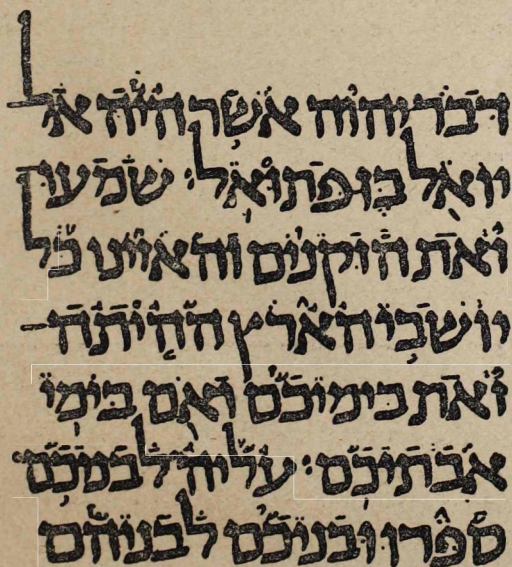 דבר יהוה אשר היה אל
יואל בן פתואל׃ שמעו
זאת הזקנים והאזינו כל
יושבי הארץ ההיתה
זאת בימיכם ואם בימי
אבתיכם׃ עליה לבניכם
ספרו ובניכם לבניהם